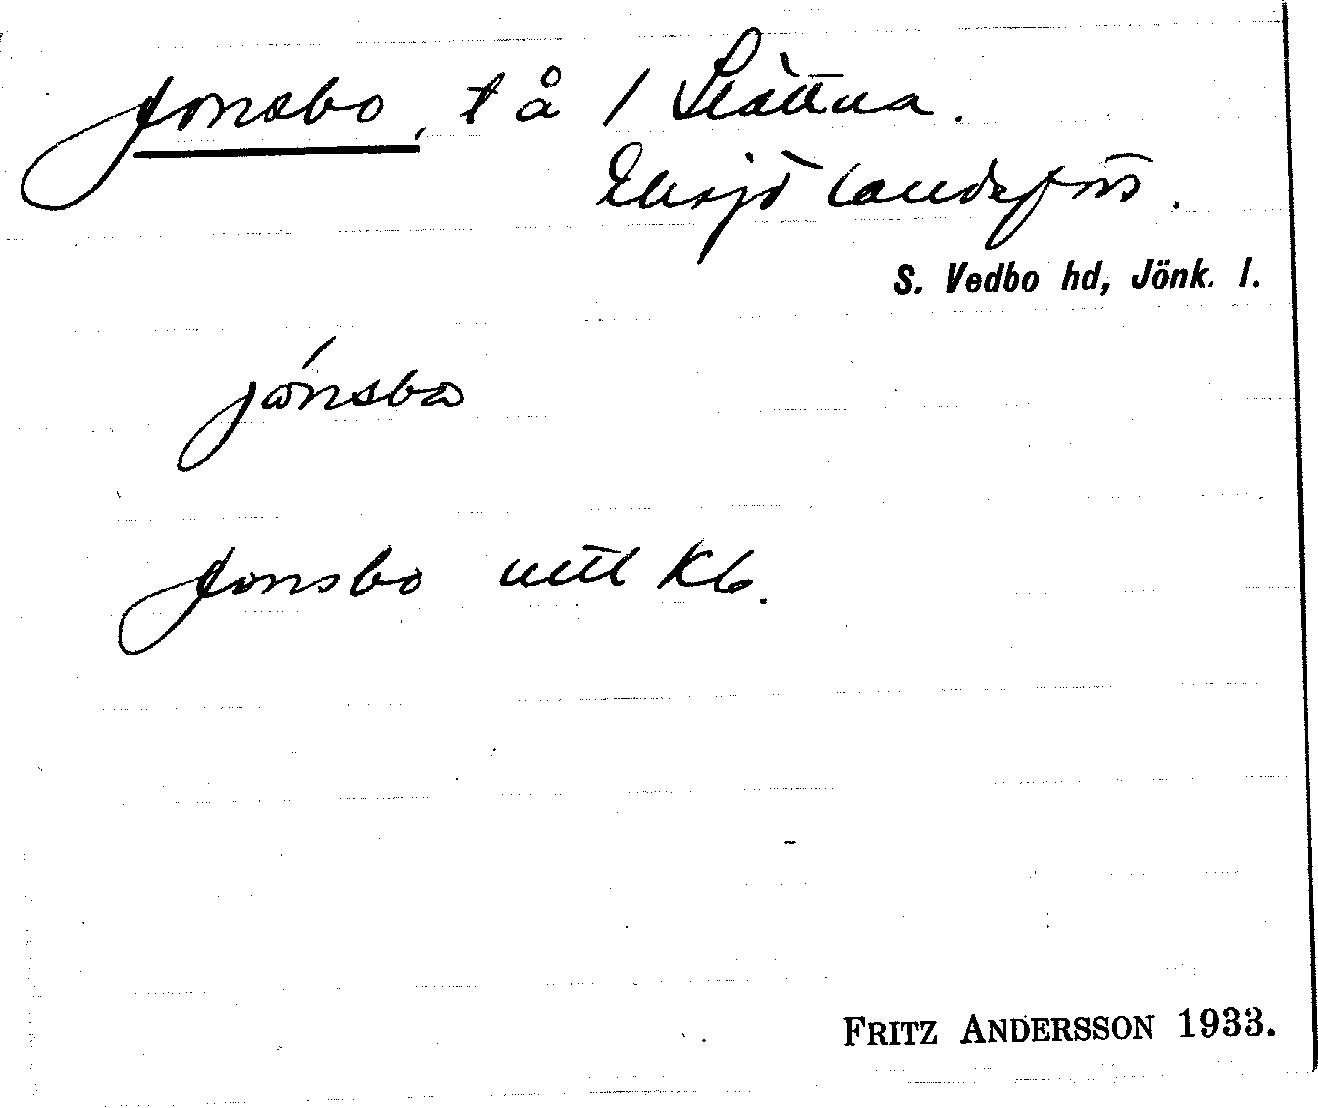 Jonsbo, t å 1 Slättna.
Eksjö landsförs.
S. Vedbo hd, Jönk. l.
jónsbo
Jonsbo utl Kb.
FRITZ ANDERSSON 1933.